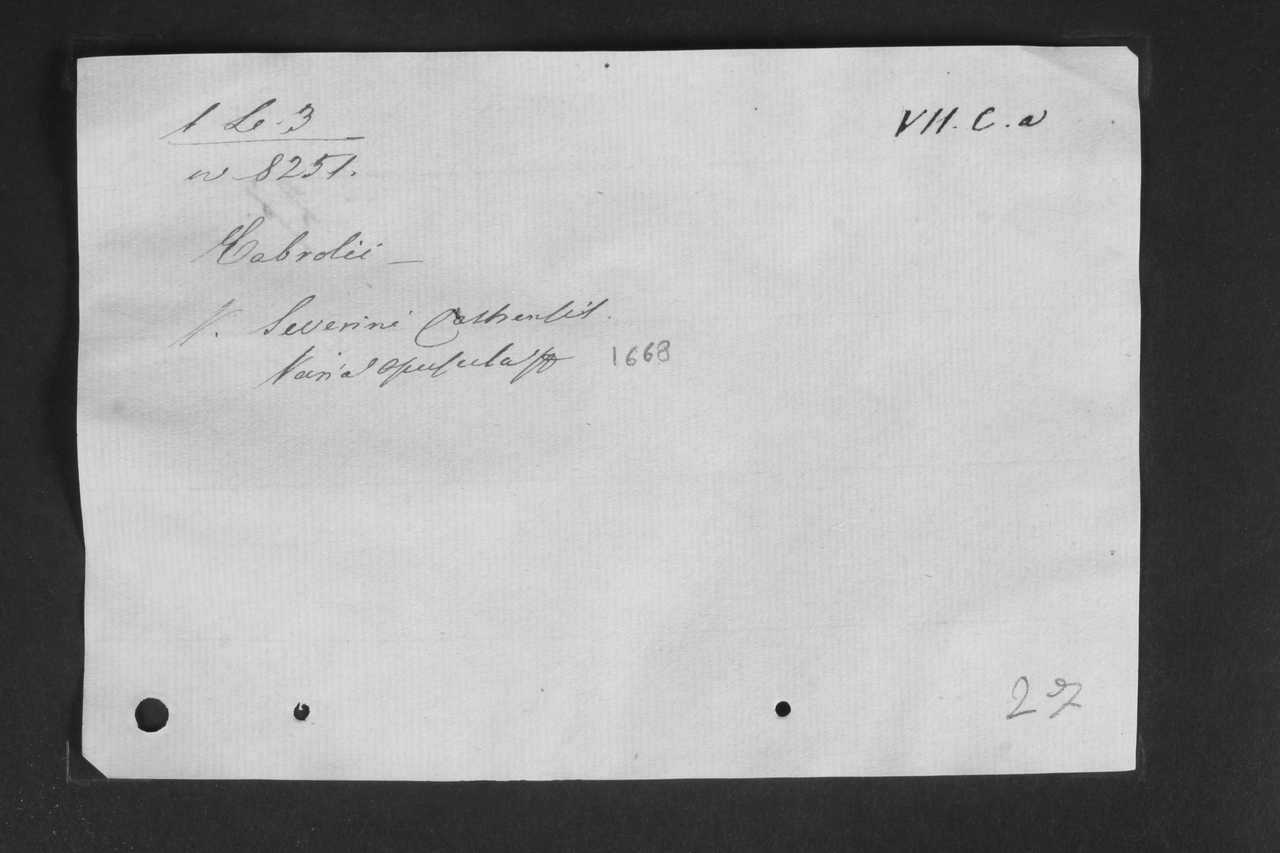 1 Le. 3
VII. C. a
w 8251.
Cabrolii —
V. Severini
Varia opuscula 1668
27